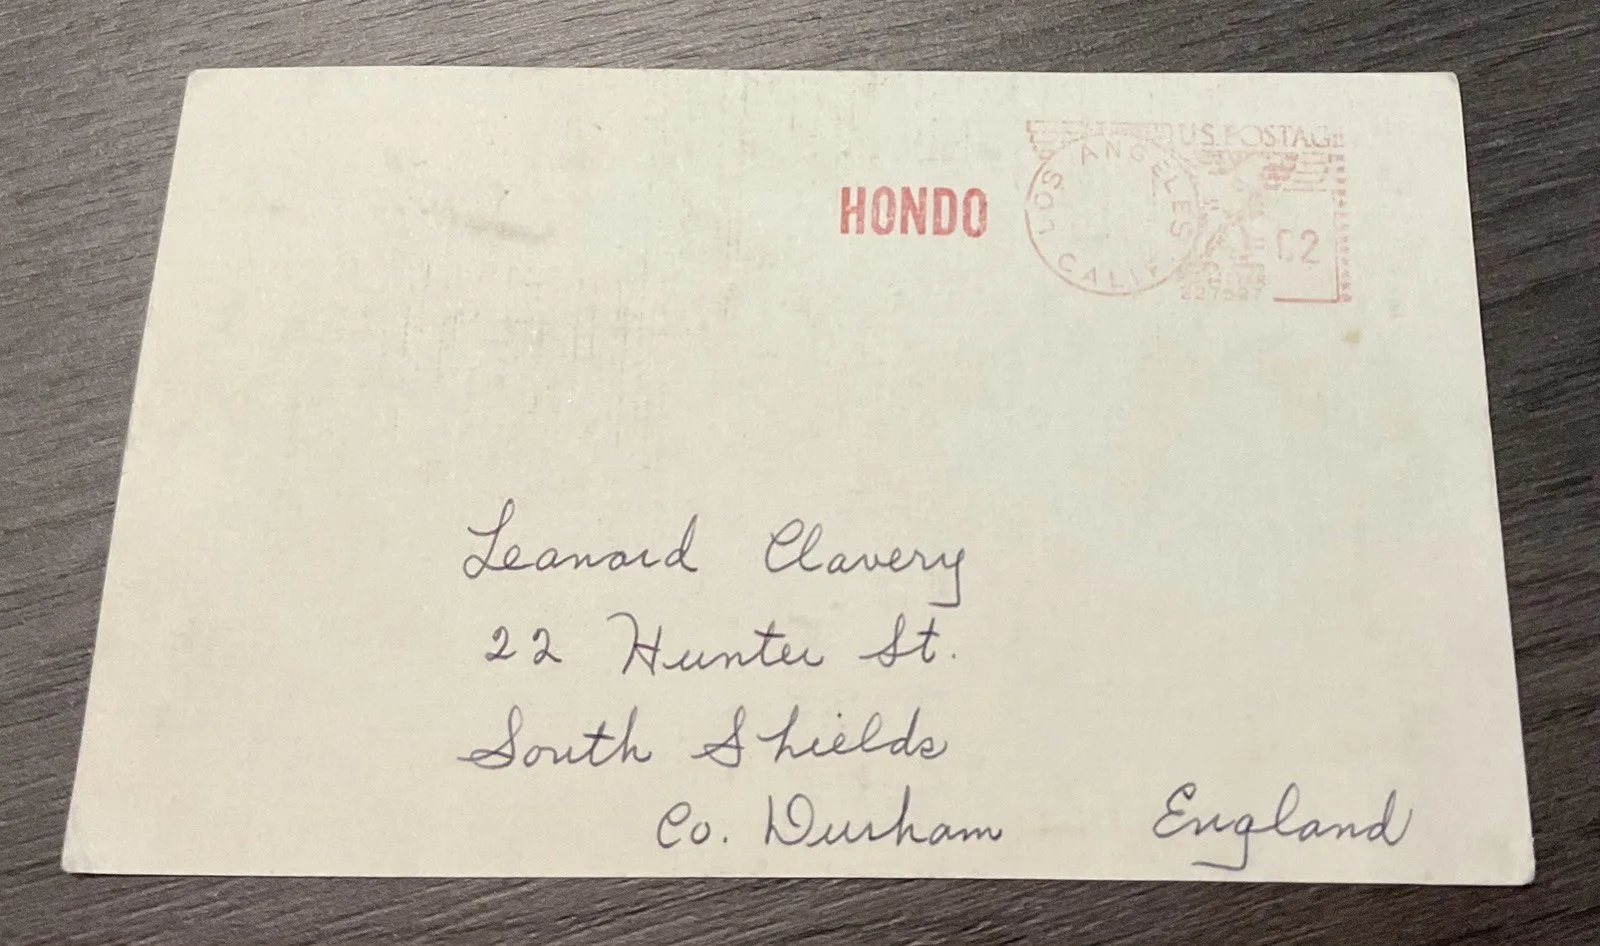 U.S. POSTAGE
HONDO
LOS ANGELES
CALIF.
Leanard Clavery
22 Hunter St.
South Shields
Co. Durham England